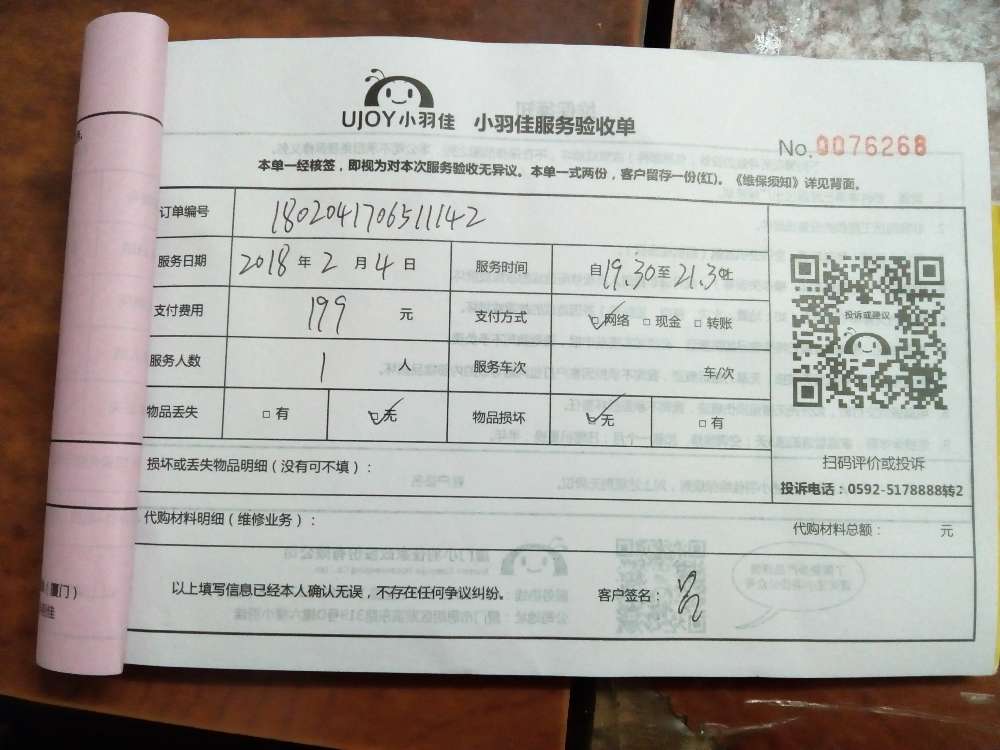 UJOY小羽佳 小羽佳服务验收单
No.0076268
本单一经核签，即视为对本次服务验收无异议。本单一式两份，客户留存一份(红)。《维保须知》详见背面。
订单编号 180204170651142
服务日期 2018年2月4日 服务时间 自19.30至21.30止
投诉或建议
支付费用 199 元 支付方式 ☑网络 □现金 □转账
服务人数 1 人 服务车次 车/次
物品丢失 □有 ☑无 物品损坏 ☑无 □有
扫码评价或投诉
损坏或丢失物品明细（没有可不填）：
投诉电话：0592-5178888转2
代购材料明细（维修业务）： 代购材料总额： 元
以上填写信息已经本人确认无误，不存在任何争议纠纷。 客户签名：
（厦门）